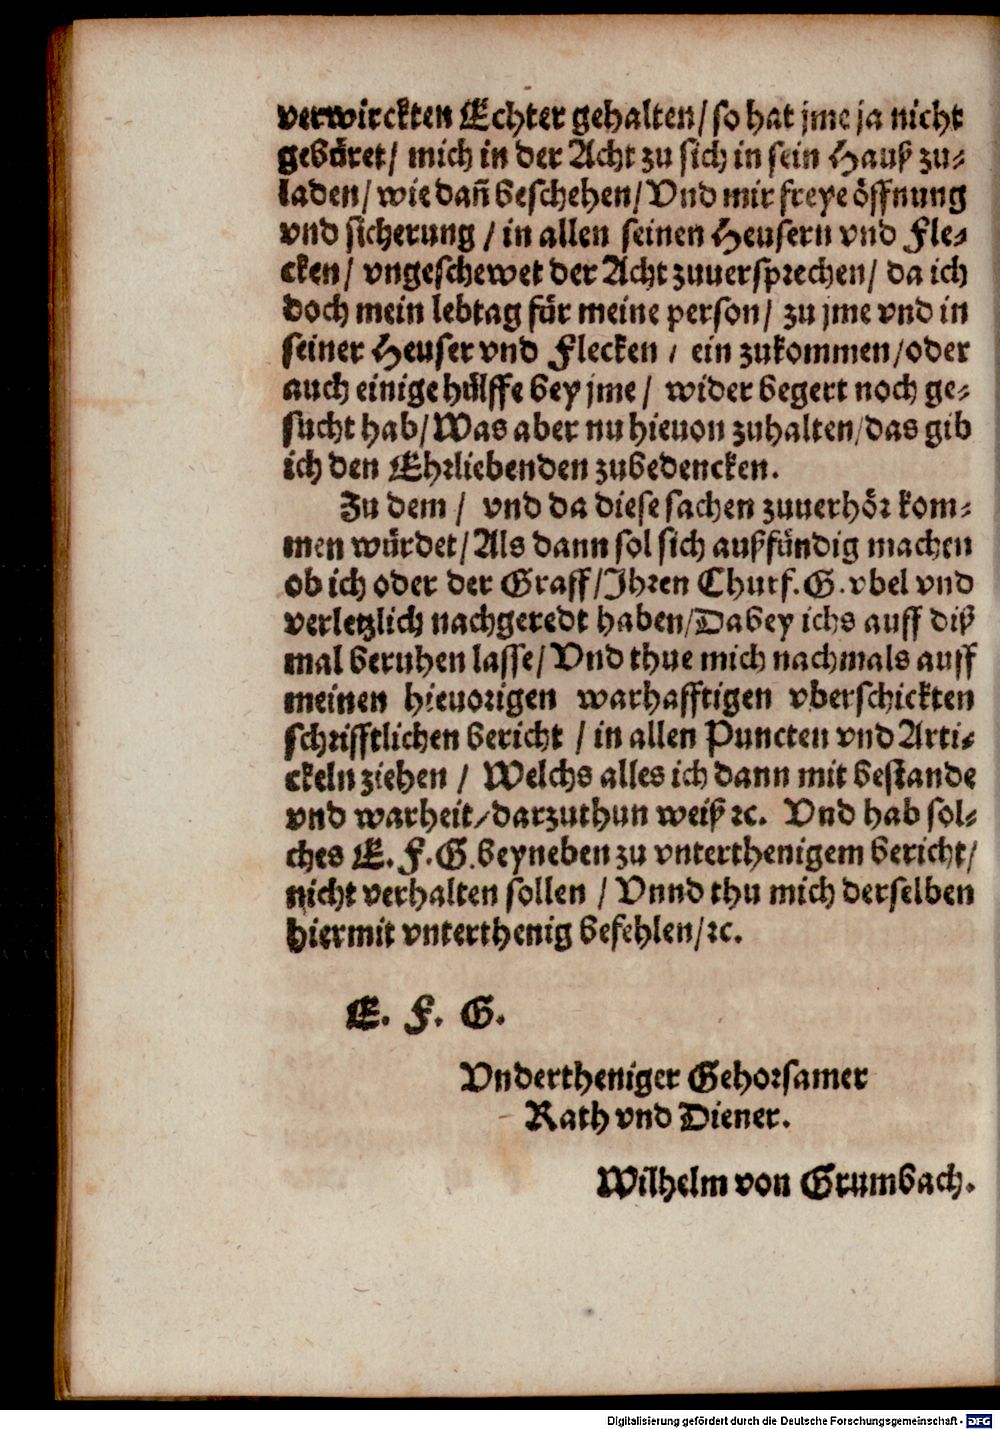 verwirckten Echter gehalten/ so hat jme ja nicht
gebüret/ mich in der Acht zu sich in sein Hauß zu-
laden/ wie dañ beschehen/ Vnd mir freye öffnung
vnd sicherung / in allen seinen Heusern vnd Fle-
cken/ vngeschewet der Acht zuuersprechen/ da ich
doch mein lebtag für meine person/ zu jme vnd in
seiner Heuser vnd Flecken / ein zukommen/oder
auch einige hülffe bey jme / wider begert noch ge-
sucht hab/ Was aber nu hieuon zuhalten/das gib
ich den Ehrliebenden zubedencken.
Zu dem / vnd da diese sachen zuuerhör kom-
men würdet/ Als dann sol sich außfündig machen
ob ich oder der Graff/Ihren Churf. G. vbel vnd
verletzlich nachgeredt haben/Dabey ichs auff diß
mal beruhen lasse/ Vnd thue mich nachmals auff
meinen hieuorigen warhafftigen vberschickten
schrifftlichen bericht / in allen Puncten vnd Arti-
ckeln ziehen / Welchs alles ich dann mit bestande
vnd warheit/darzuthun weiß ꝛc. Vnd hab sol-
ches E. F. G. beyneben zu vnterthenigem bericht/
nicht verhalten sollen / Vnnd thu mich derselben
hiermit vnterthenig befehlen/ꝛc.
E. F. G.
Vndertheniger Gehorsamer
Rath vnd Diener.
Wilhelm von Grumbach.
Digitalisierung gefördert durch die Deutsche Forschungsgemeinschaft - DFG